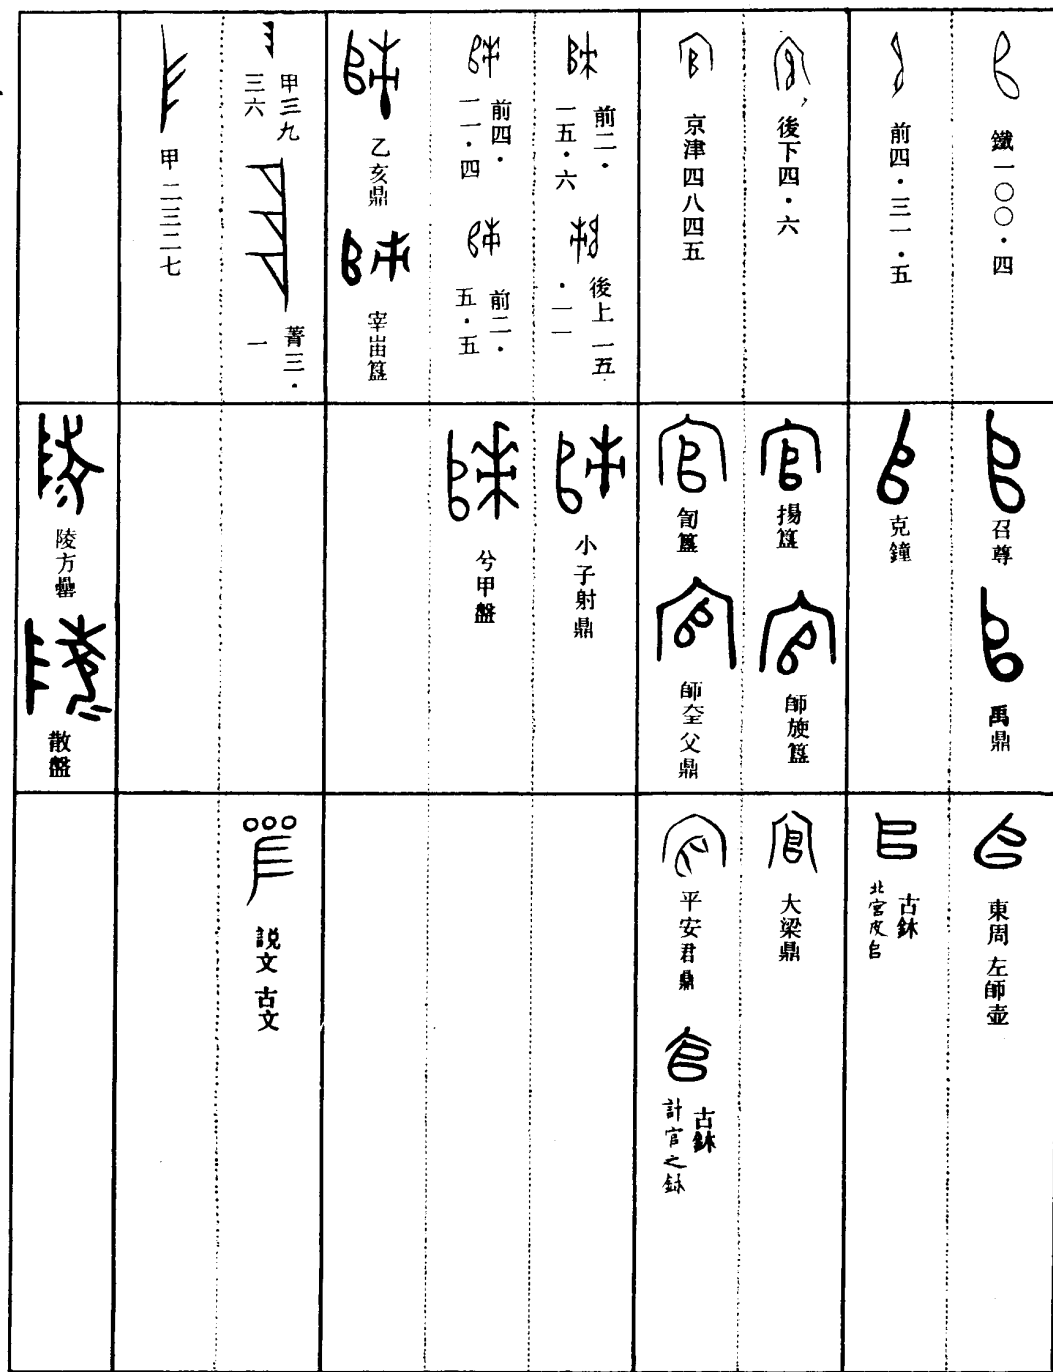 鐵一〇〇·四
前四·三一·五
後下四·六
京津四八四五
前二·
一五·六
後上一五
·一一
前四·
一一·四
前二·
五·五
乙亥鼎
宰甾簋
甲三九
三六
菁三·
一
甲二三二七
召尊
禹鼎
克鐘
揚簋
師𬀈簋
訇簋
師𡘇父鼎
小子射鼎
兮甲盤
陵方罍
散盤
東周左師壺
古鉨
北宮皮𠂤
大梁鼎
平安君鼎
古鉨
計官之鉨
説文古文